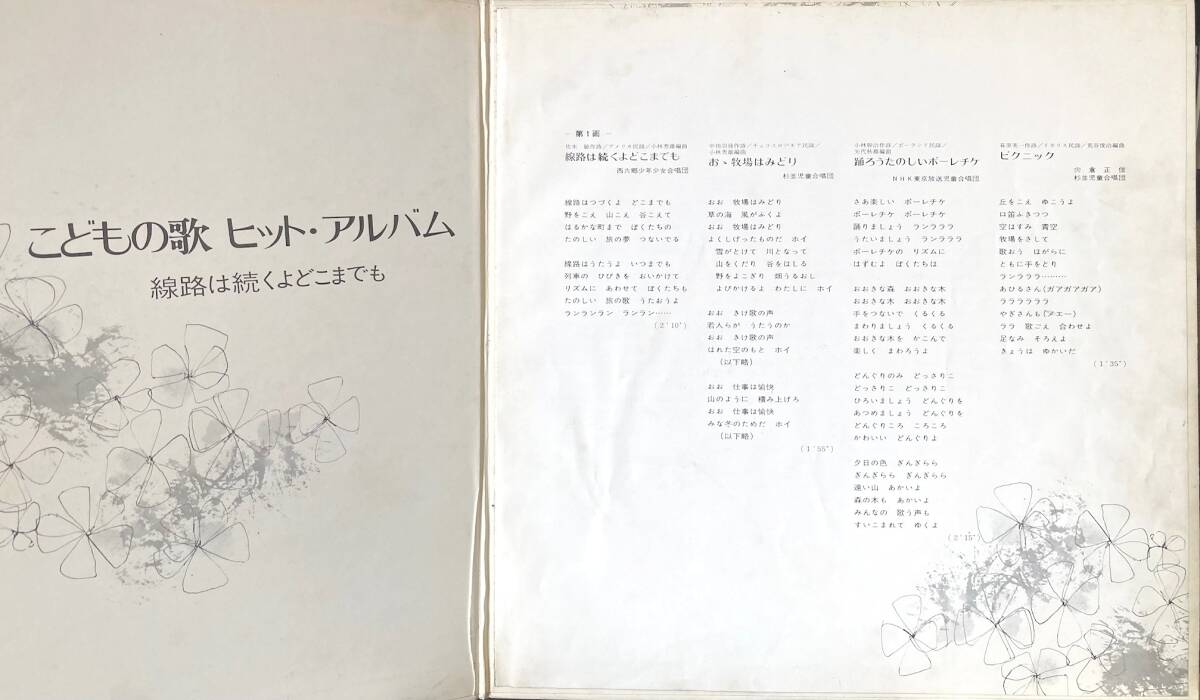 こどもの歌 ヒット・アルバム
線路は続くよどこまでも
― 第1面 ―
佐木 敏作詩/アメリカ民謡/小林秀雄編曲
線路は続くよどこまでも
西六郷少年少女合唱団
線路はつづくよ どこまでも
野をこえ 山こえ 谷こえて
はるかな町まで ぼくたちの
たのしい 旅の夢 つないでる
線路はうたうよ いつまでも
列車の ひびきを おいかけて
リズムに あわせて ぼくたちも
たのしい 旅の歌 うたおうよ
ランランラン ランラン……
(2'10")
中田羽後作詩/チェコスロバキア民謡/
小林秀雄編曲
おゝ牧場はみどり
杉並児童合唱団
おお 牧場はみどり
草の海 風がふくよ
おお 牧場はみどり
よくしげったものだ ホイ
雪がとけて 川となって
山をくだり 谷をはしる
野をよこぎり 畑うるおし
よびかけるよ わたしに ホイ
おお きけ歌の声
若人らが うたうのか
おお きけ歌の声
はれた空のもと ホイ
(以下略)
おお 仕事は愉快
山のように 積み上げろ
おお 仕事は愉快
みな冬のためだ ホイ
(以下略)
(1'55")
小林幹治作詩/ポーランド民謡/
矢代秋雄編曲
踊ろうたのしいポーレチケ
NHK東京放送児童合唱団
さあ楽しい ポーレチケ
ポーレチケ ポーレチケ
踊りましょう ランラララ
うたいましょう ランラララ
ポーレチケの リズムに
はずむよ ぼくたちは
おおきな森 おおきな木
おおきな木 おおきな木
手をつないで くるくる
まわりましょう くるくる
おおきな木を かこんで
楽しく まわろうよ
どんぐりのみ どっさりこ
どっさりこ どっさりこ
ひろいましょう どんぐりを
あつめましょう どんぐりを
どんぐりころ ころころ
かわいい どんぐりよ
夕日の色 ぎんぎらら
ぎんぎらら ぎんぎらら
遠い山 あかいよ
森の木も あかいよ
みんなの 歌う声も
すいこまれて ゆくよ
(2'15")
萩原英一作詩/イギリス民謡/若谷俊治編曲
ピクニック
宍倉正信
杉並児童合唱団
丘をこえ ゆこうよ
口笛ふきつつ
空はすみ 青空
牧場をさして
歌おう ほがらに
ともに手をとり
ランラララ………
あひるさん(ガアガアガア)
ララララララ
やぎさんも(メエー)
ララ 歌ごえ 合わせよ
足なみ そろえよ
きょうは ゆかいだ
(1'35")